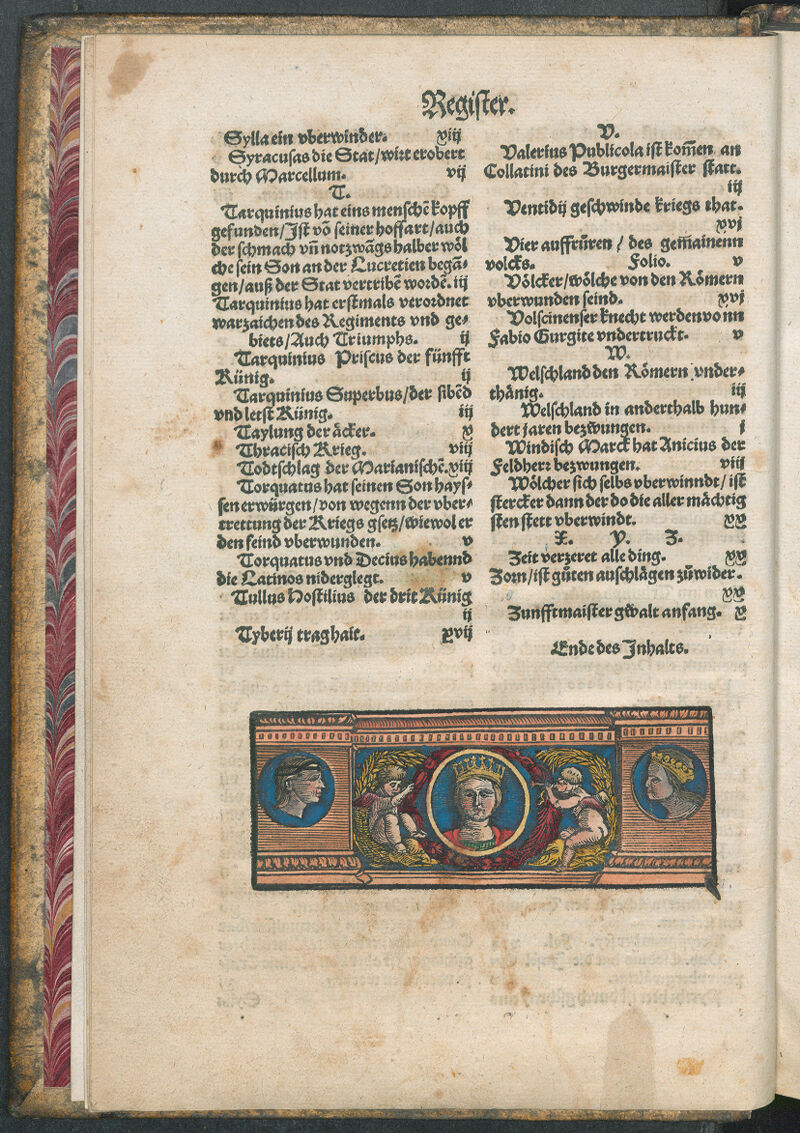 Register.
Sylla ein vberwinder. xiij
Syracusas die Stat/wirt erobert
durch Marcellum. vij
T.
Tarquinius hat eins menschē kopff
gefunden/Jst vō seiner hoffart/auch
der schmach vn̄ notzwāgs halber wöl
che sein Son an der Lucretien begā-
gen/auß der Stat vertribē wordē. iij
Tarquinius hat erstmals verordnet
warzaichen des Regiments vnd ge-
biets/Auch Triumphs. ij
Tarquinius Priscus der fünfft
Künig. ij
Tarquinius Superbus/der sibēd
vnd letst Künig. iij
Taylung der äcker. x
Thracisch Krieg. viij
Todtschlag der Marianischē. xiij
Torquatus hat seinen Son hays-
sen erwürgen/von wegenn der vber-
trettung der Kriegs gsetz/wiewol er
den feind vberwunden. v
Torquatus vnd Decius habennd
die Latinos niderglegt. v
Tullus Hostilius der drit Künig
ij
Tyberij traghait. xvij
V.
Valerius Publicola ist kom̄en an
Collatini des Burgermaister statt.
iij
Ventidij geschwinde kriegs that.
xvj
Vier auffrůren / des gem̄ainenn
volcks. Folio. v
Völcker/wölche von den Römern
vberwunden seind. xvj
Volscinenser knecht werden vonn
Fabio Gurgite vndertruckt. v
W.
Welschland den Römern vnder-
thänig. iij
Welschland in anderthalb hun-
dert jaren bezwungen. j
Windisch Marck hat Anicius der
Feldherr bezwungen. viij
Wölcher sich selbs vberwinndt/ist
stercker dann der do die aller mächtig
sten stett vberwindt. xx
X. Y. Z.
Zeit verzeret alle ding. xx
Zorn/ist gůten anschlägen zůwider.
xx
Zunfftmaister gwalt anfang. x
Ende des Jnhalts.